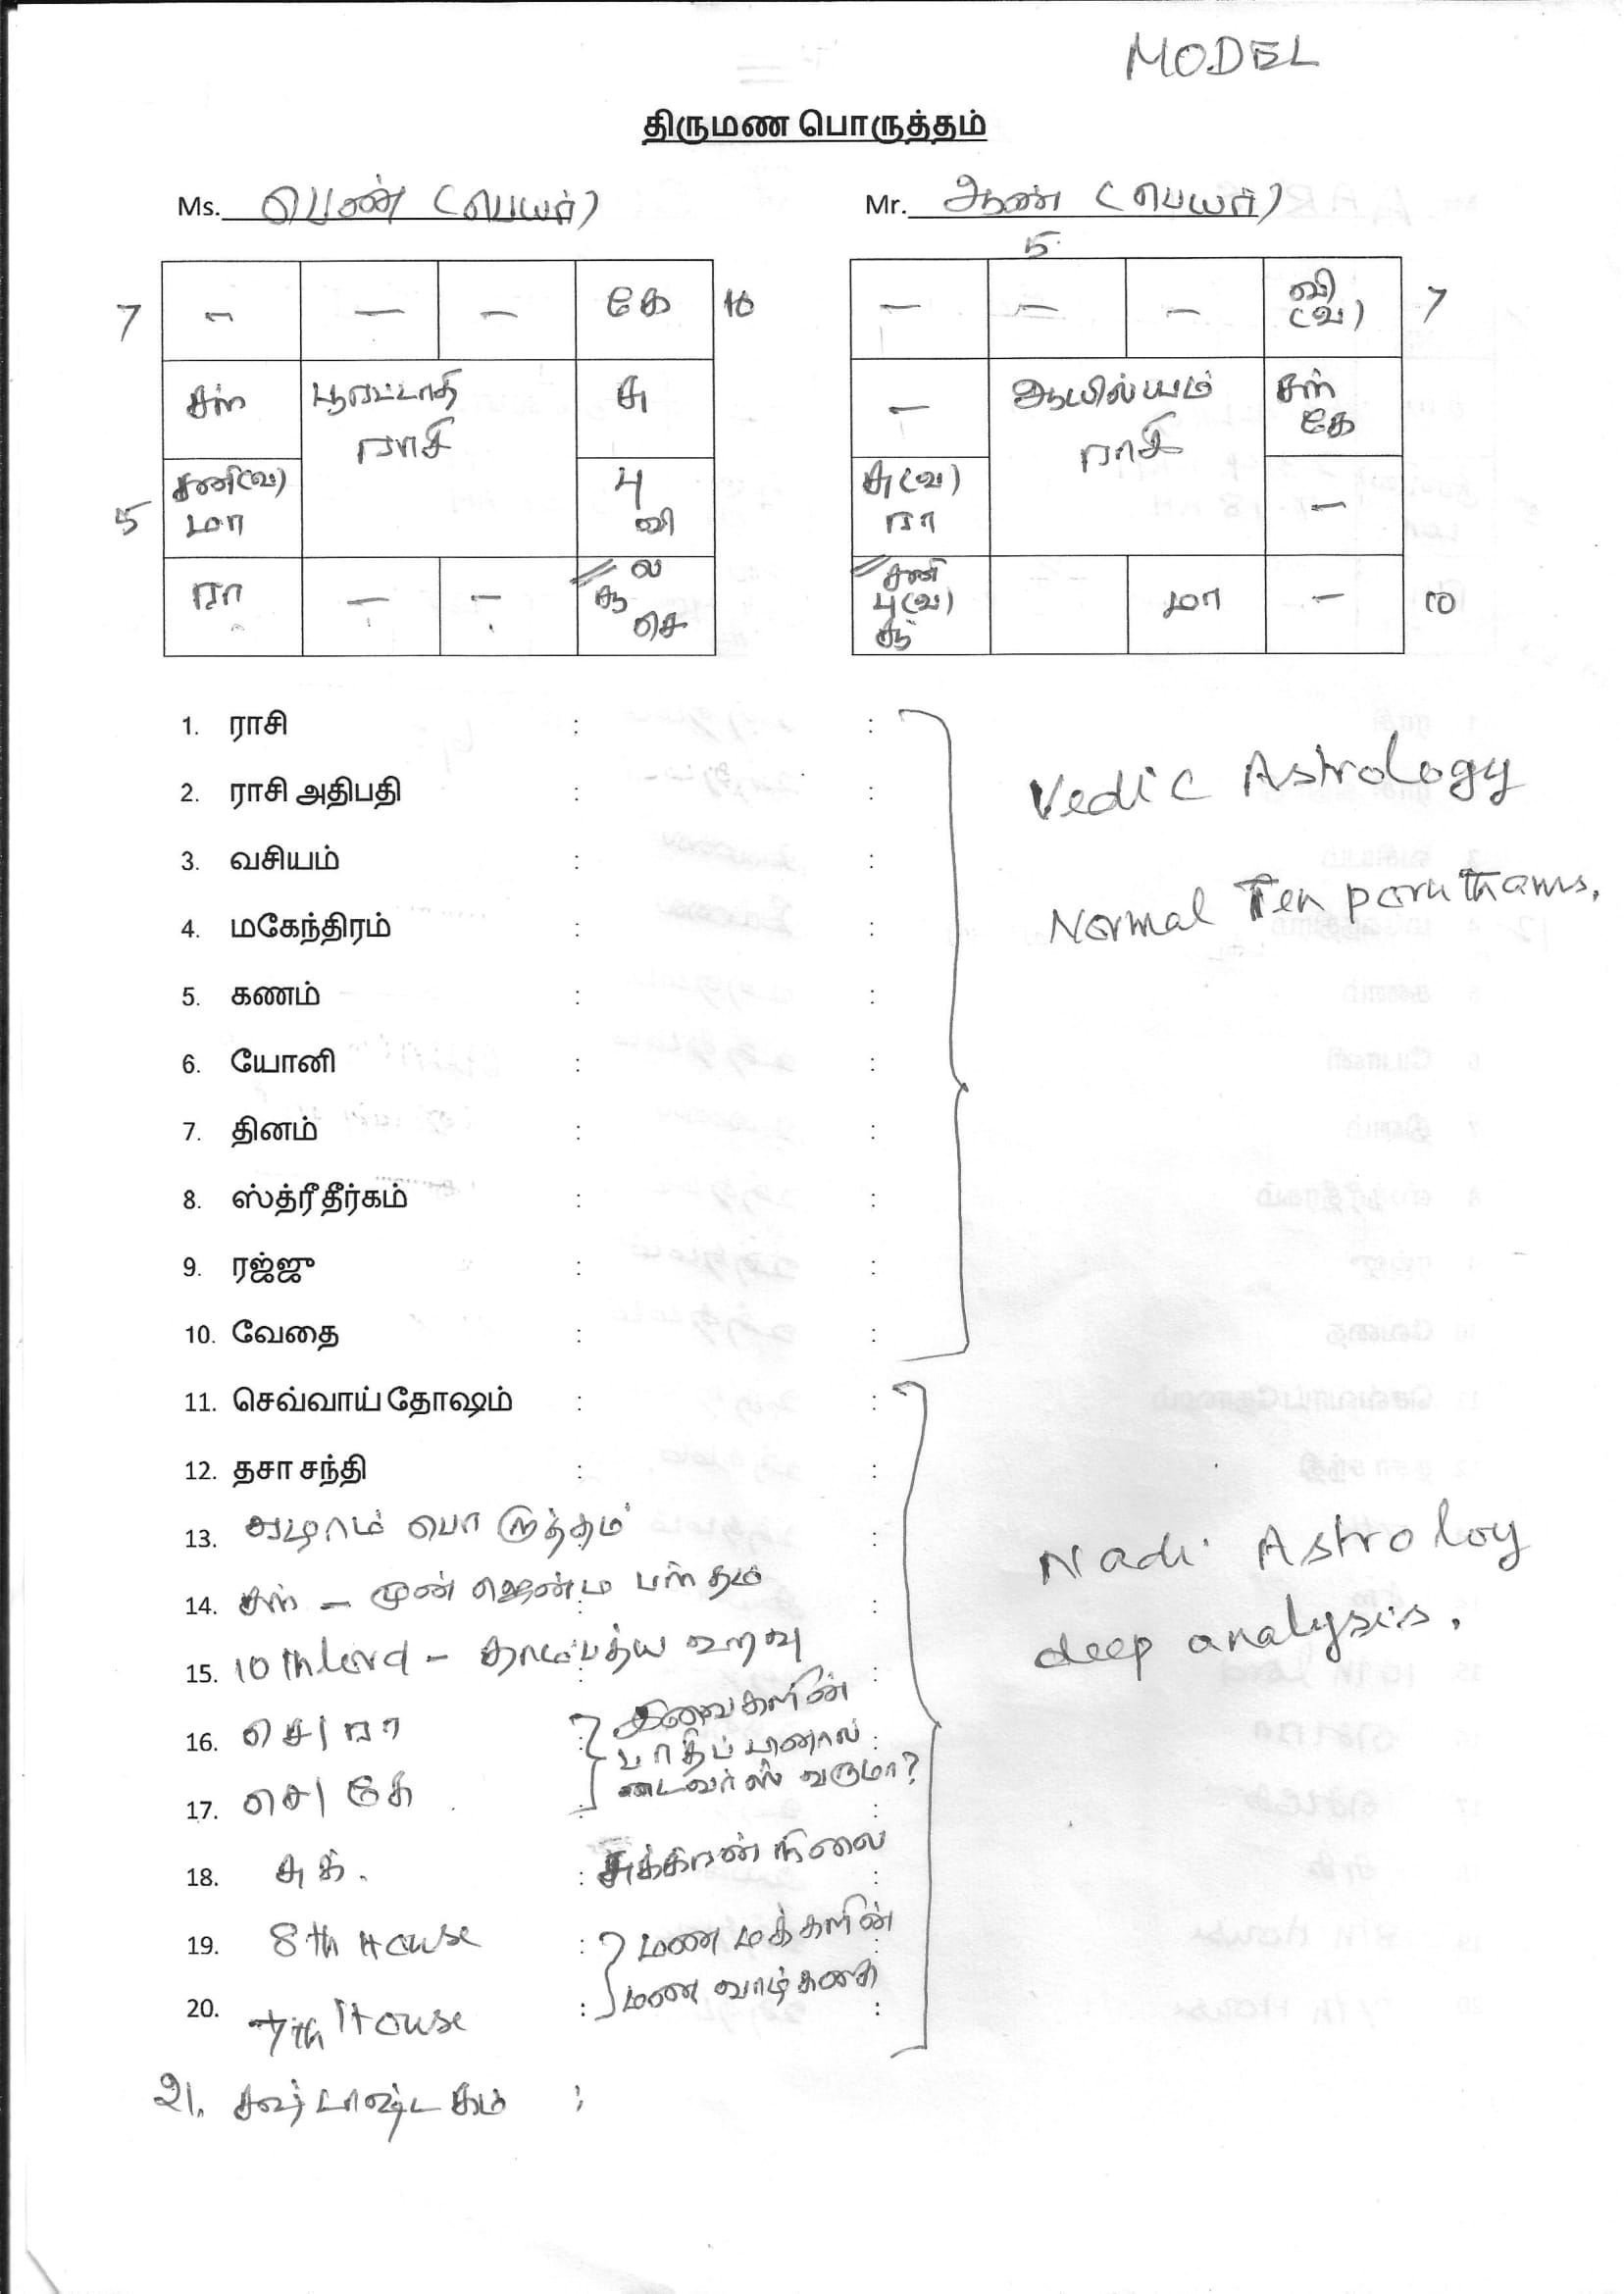 MODEL
திருமண பொருத்தம்
Ms. பெண் (பெயர்)
Mr. ஆண் (பெயர்)
5
7 – – – கே 10
– – – வி (வ) 7
சன் பூரட்டாதி ராசி சு
– ஆயில்யம் ராசி சன் கே
5 சனி(வ) மா பு வி
சு(வ) ரா –
ரா – – ல சூ செ
சனி பு(வ) சூ மா – 10
1. ராசி : :
2. ராசி அதிபதி : :
Vedic Astrology
3. வசியம் : :
4. மகேந்திரம் : :
Normal Ten poruthams.
5. கணம் : :
6. யோனி : :
7. தினம் : :
8. ஸ்த்ரீ தீர்கம் : :
9. ரஜ்ஜு : :
10. வேதை : :
11. செவ்வாய் தோஷம் : :
12. தசா சந்தி : :
13. ஏழாம் பொருத்தம் :
14. சன் – முன் ஜென்ம பந்தம் :
Nadi Astroloy
deep analysis.
15. 10th lord – தாம்பத்ய உறவு :
16. செ/ரா : இவைகளின்
பாதிப்பினால்
17. செ/கே டைவர்ஸ் வருமா?
18. சுக். : சுக்கிரன் நிலை
19. 8th House : மண மக்களின்
20. 7th House : மண வாழ்க்கை
21. அஷ்டாஷ்டகம் :